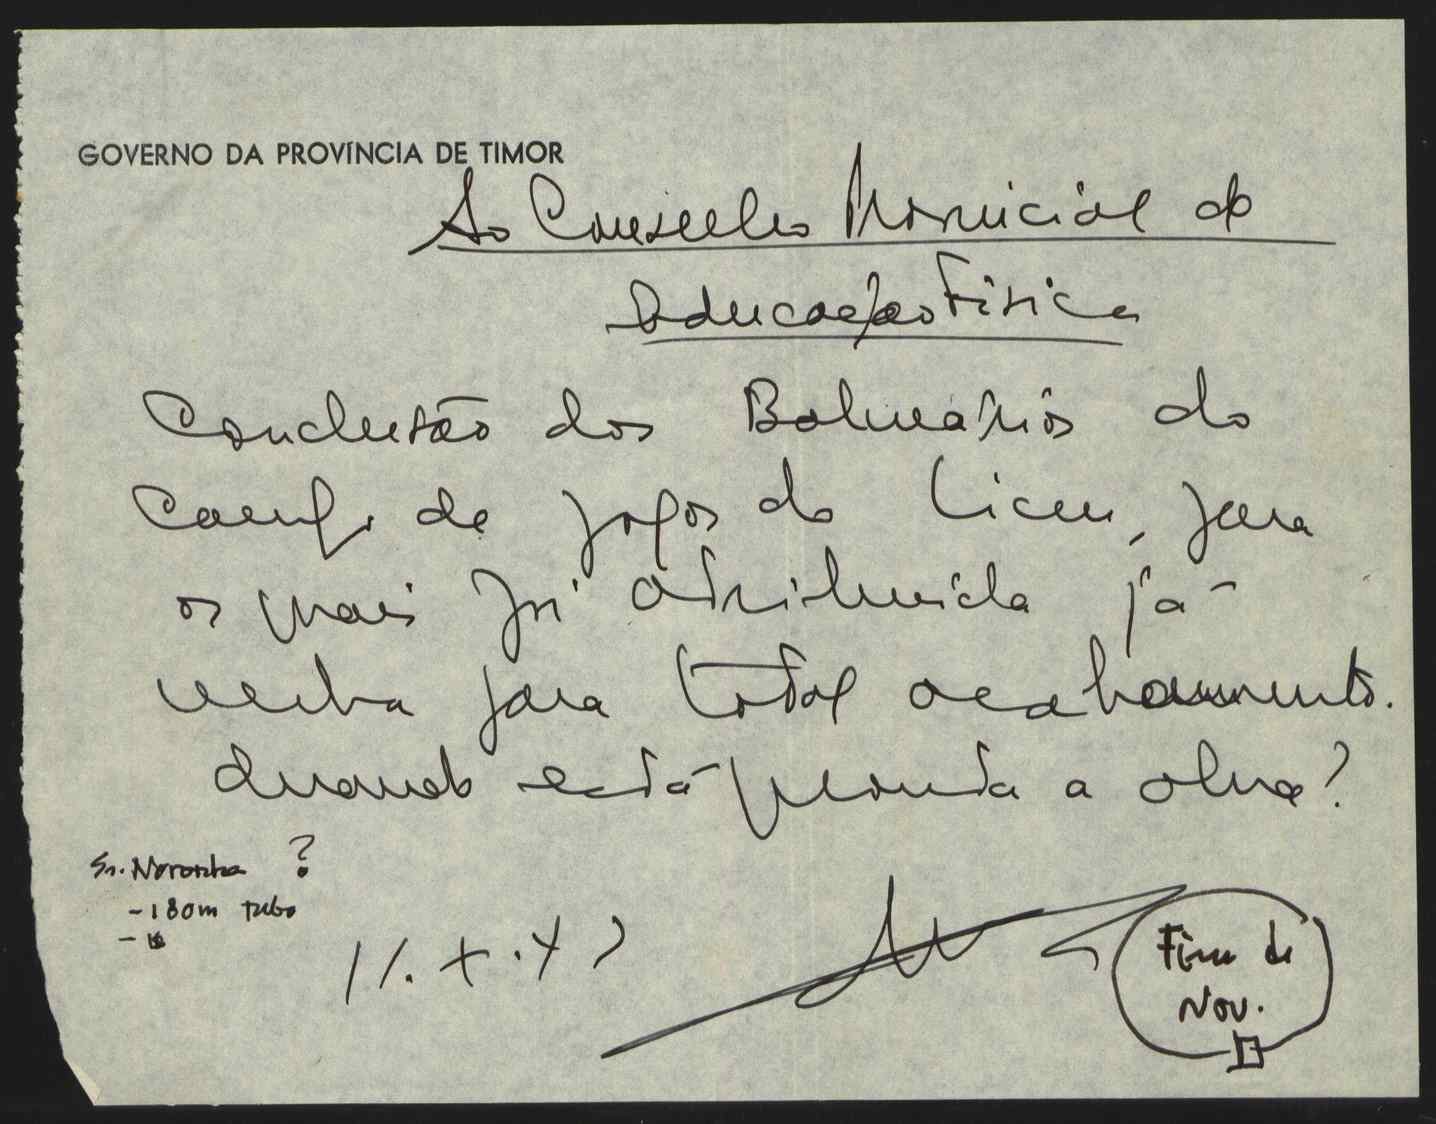 GOVERNO DA PROVÍNCIA DE TIMOR
Ao Conselho Provincial de
Educação Física
Conclusão dos Balneários do
Campo de jogos do Liceu, para
os quais foi atribuida já
verba para total acabamento.
Quando está pronta a obra?
Sr. Noronha ?
- 180m tubo
-
11.X.72
Fim de
Nov.